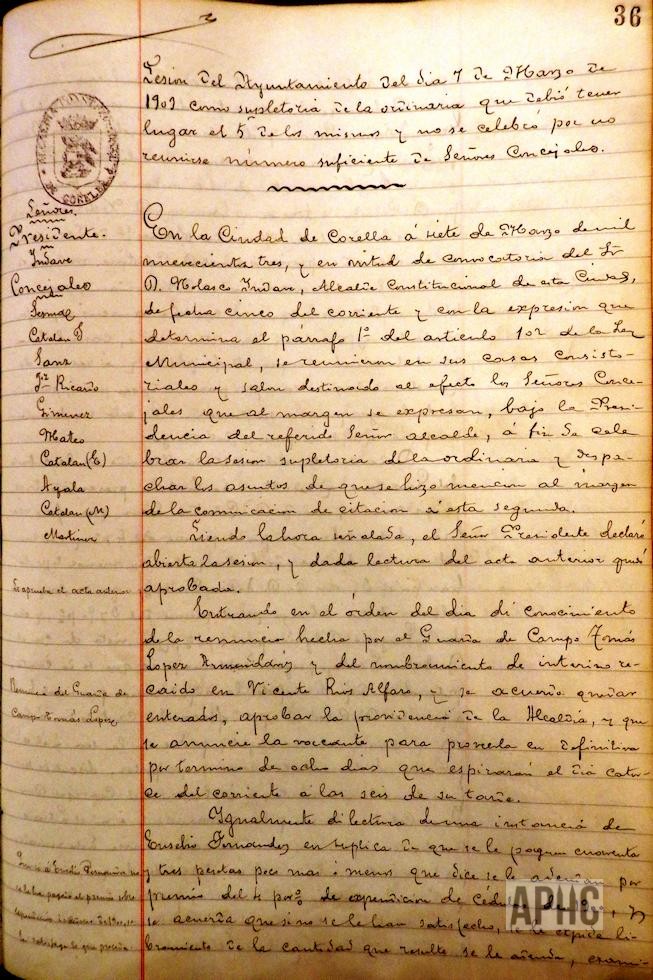 36
Sesion del Ayuntamiento del dia 7 de Marzo de
1903 como supletoria de la ordinaria que debió tener
lugar el 5 de los mismos y no se celebró por no
reunirse número suficiente de Señores Concejales.
DE CORELLA
Señores
Presidente.
Indave
Concejales
Sesma
Catalan
Sanz
Jz Ricardo
Gimenez
Mateo
Catalan (E)
Ayala
Catalan (M)
Martinez
En la Ciudad de Corella á siete de Marzo de mil
novecientos tres, y en virtud de convocatoria del Sr
D. Nolasco Indave, Alcalde Constitucional de esta Ciudad,
de fecha cinco del corriente y con la expresion que
determina el párrafo 1º del articulo 102 de la Ley
Municipal, se reunieron en sus casas consisto-
riales y salon destinado al efecto los Señores Conce-
jales que al margen se expresan, bajo la Presi-
dencia del referido Señor alcalde, á fin de cele
brar la sesion supletoria de la ordinaria y despa-
char los asuntos de que se hizo mencion al margen
de la comunicacion de citacion á esta segunda.
Siendo la hora señalada, el Señor Presidente declaró
abierta la sesion, y dada lectura del acta anterior quedó
aprobada.
Se aprueba el acta anterior
Entrando en el órden del dia di conocimiento
de la renuncia hecha por el Guarda de Campo Tomás
Lopez Armendáriz y del nombramiento de interino re-
caido en Vicente Ruiz Alfaro, y se acuerda quedar
enterados, aprobar la providencia de la Alcaldia, y que
se anuncie la vacante para proveerla en definitiva
por termino de ocho dias que espirarán el dia cator-
ce del corriente á las seis de su tarde.
Renuncia del Guarda de
Campo Tomás Lopez
Igualmente di lectura de una instancia de
Eusebio Fernandez en suplica de que se le paguen cuarenta
y tres pesetas poco mas ó menos que dice se le adeudan por
premio del 4 por % de expendicion de Cédulas de
se acuerda que si no se le han satisfecho, se le expida li-
bramiento de la cantidad que resulte se le adeuda, exami-
APHC